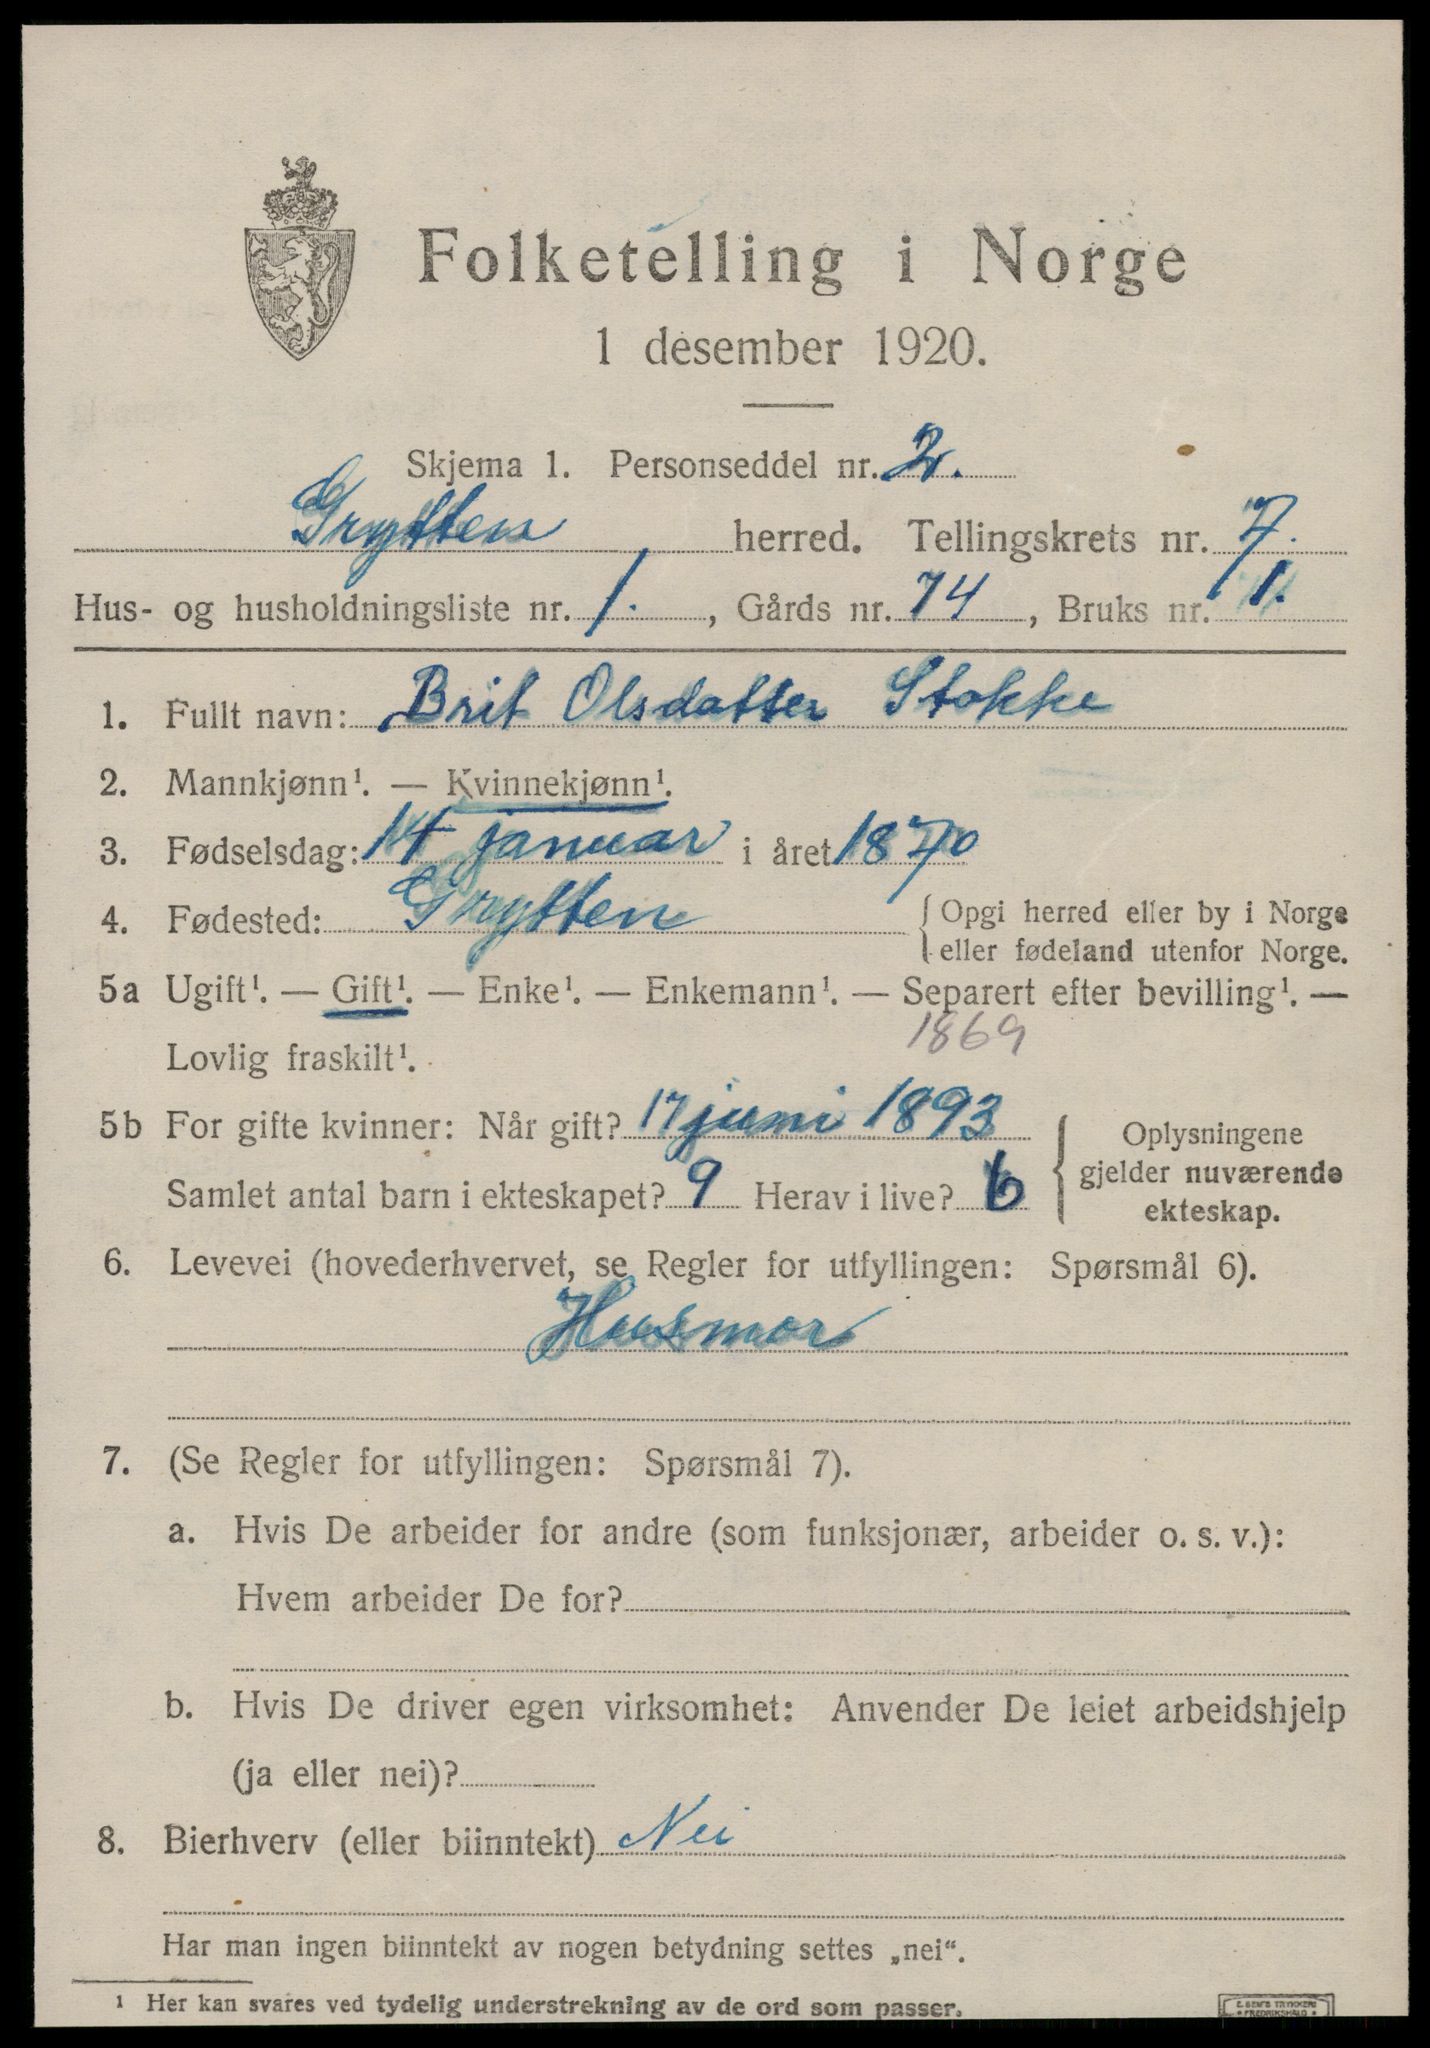 Folketelling i Norge
1 desember 1920.
Skjema 1. Personseddel nr. 2.
Grytten herred. Tellingskrets nr. 7.
Hus- og husholdningsliste nr. 1., Gårds nr. 74, Bruks nr. 1.
1. Fullt navn: Brit Olsdatter Stokke
2. Mannkjønn¹. — Kvinnekjønn¹.
3. Fødselsdag: 14 januar i året 1870
4. Fødested: Grytten { Opgi herred eller by i Norge
eller fødeland utenfor Norge.
5a Ugift¹. — Gift¹. — Enke¹. — Enkemann¹. — Separert efter bevilling¹. —
1869
Lovlig fraskilt¹.
5b For gifte kvinner: Når gift? 17 juni 1893
Samlet antal barn i ekteskapet? 9 Herav i live? 6
{ Oplysningene
gjelder nuværende
ekteskap.
6. Levevei (hovederhvervet, se Regler for utfyllingen: Spørsmål 6).
Husmor
7. (Se Regler for utfyllingen: Spørsmål 7).
a. Hvis De arbeider for andre (som funksjonær, arbeider o. s. v.):
Hvem arbeider De for?
b. Hvis De driver egen virksomhet: Anvender De leiet arbeidshjelp
(ja eller nei)?
8. Bierhverv (eller biinntekt) Nei
Har man ingen biinntekt av nogen betydning settes „nei“.
¹ Her kan svares ved tydelig understrekning av de ord som passer.